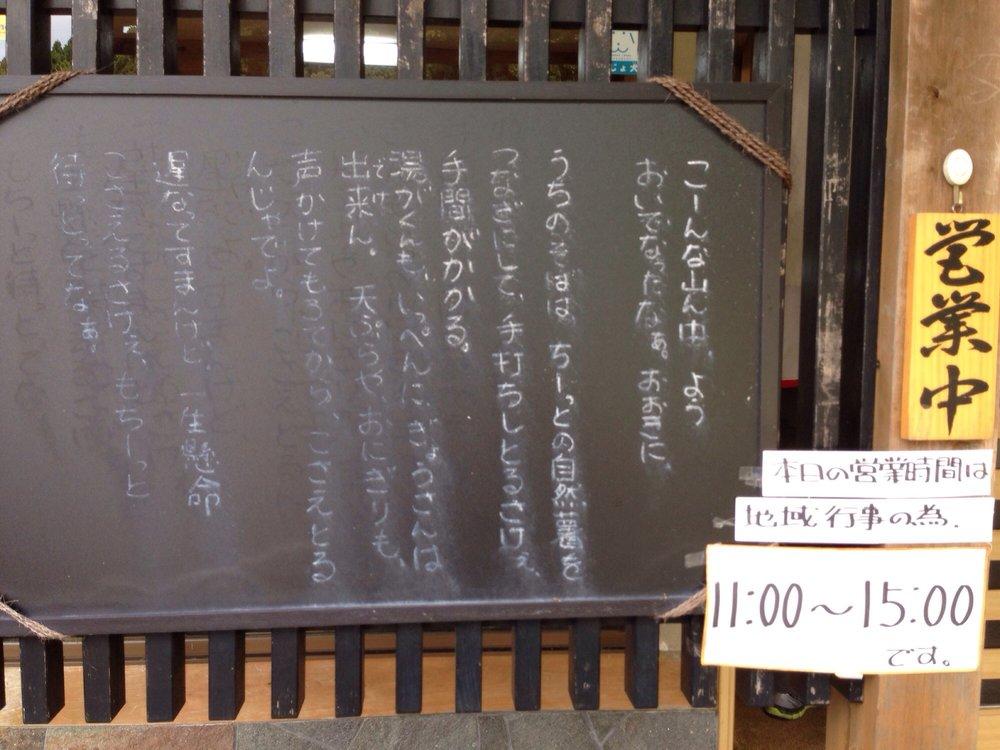 こーんな山ん中、よう
おいでなったなぁ。おおきに、
うちのそばは、ちーっとの自然薯を
つなぎにして、手打ちしとるさけぇ、
手間がかかる。
湯がくんも、いっぺんにぎょうさんは
出来ん。天ぷらや、おにぎりも、
でけ
声かけてもろてから、こさえとる
んじゃでよ。
遅なってすまんけど、一生懸命
こさえるさけぇ、もちーっと
待っとってなぁ。
営業中
本日の営業時間は
地域行事の為、
11:00～15:00
です。